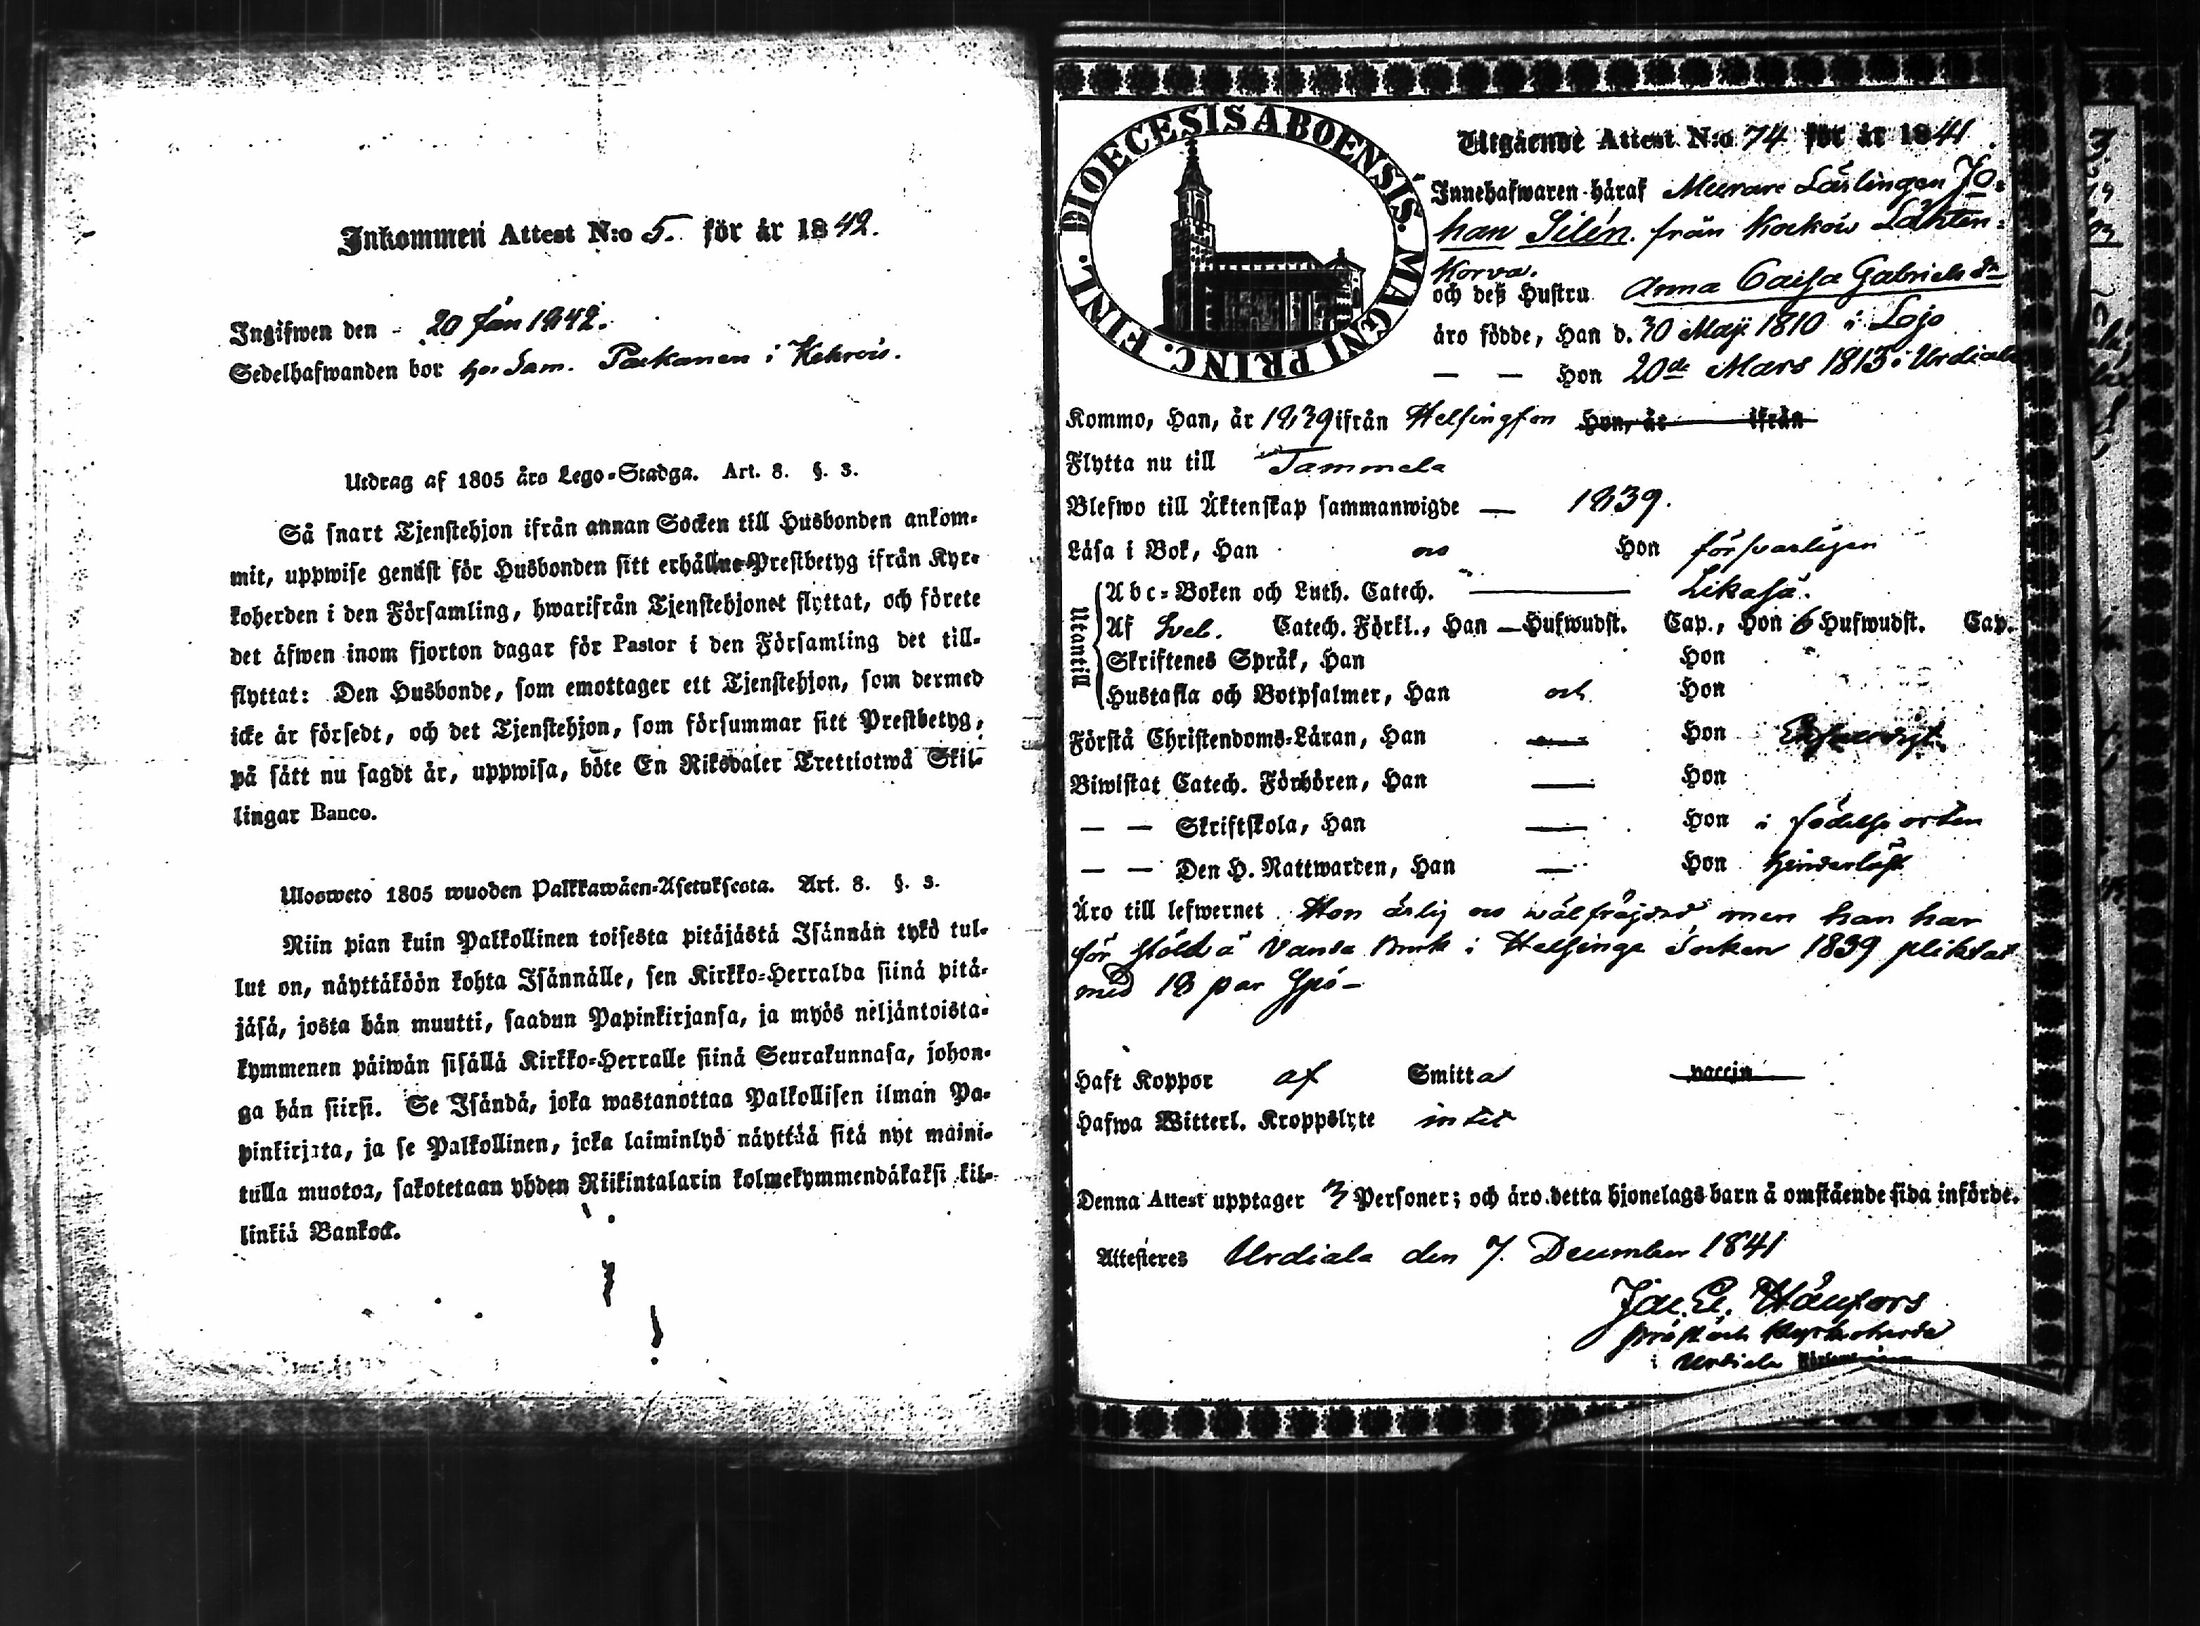 Inkommen Attest N:o 5. för år 1842.
Ingifwen den - 20 Jan 1842.
Sedelhafwanden bor hos Sam. Packanen i Kehrois.
Utdrag af 1805 års Lego-Stadga. Art. 8. §. 3.
Så snart Tjenstehjon ifrån annan Socken till Husbonden ankom-
mit, uppwise genast för Husbonden sitt erhållne Prestbetyg ifrån Kyr-
koherden i den Församling, hwarifrån Tjenstehjonet flyttat, och förete
det äfwen inom fjorton dagar för Pastor i den Församling det till-
flyttat: Den Husbonde, som emottager ett Tjenstehjon, som dermed
icke är försedt, och det Tjenstehjon, som försummar sitt Prestbetyg,
på sätt nu sagdt är, uppwisa, böte En Riksdaler Trettiotwå Skil-
lingar Banco.
Ulosweto 1805 wuoden Palkkawäen-Asetuksesta. Art. 8. §. 3.
Niin pian kuin Palkollinen toisesta pitäjästä Isännän tykö tul-
lut on, näyttäköön kohta Isännälle, sen Kirkko-Herralda siinä pitä-
jäsä, josta hän muutti, saadun Papinkirjansa, ja myös neljäntoista-
kymmenen päiwän sisällä Kirkko-Herralle siinä Seurakunnasa, johon-
ga hän siirsi. Se Isändä, joka wastanottaa Palkollisen ilman Pa-
pinkirjata, ja se Palkollinen, joka laiminlyö näyttää sitä nyt maini-
tulla muotoa, sakotetaan yhden Riikintalarin kolmekymmendäkaksi kil-
linkiä Bankost.
DIOECESIS ABOENSIS. MAGNI PRINC. FINL.
Utgående Attest N:o 74 för år 1841.
Innehafwaren häraf Murare Lärlingen Jo-
han Silén. från Kockois Lähten-
Korva.
och deß Hustru Anna Caisa Gabrielsdr
äro födde, Han d. 30 Maji 1810 i Lojo
— — Hon 20de Mars 1813 i Urdiala
Kommo, Han, år 1839 ifrån Helsingfors Hon, år ifrån
Flytta nu till Tammela
Blefwo till Äktenskap sammanwigde — 1839.
Läsa i Bok, Han oc Hon försvarligen
Utantill
Abc-Boken och Luth. Catech. Likaså.
Af Sveb. Catech. Förkl., Han — Hufwudst. Cap., Hon 6 Hufwudst. Cap.
Skriftenes Språk, Han Hon
Hustafla och Botpsalmer, Han och Hon
Förstå Christendoms-Läran, Han — Hon
Biwistat Catech. Förhören, Han — Hon
— — Skriftskola, Han — Hon i födelse orten
— — Den H. Nattwarden, Han — Hon hinderlöst
Äro till lefwernet Hon ärlig oc wälfräjdad men han har
för stöld å Vanda Bruk i Helsinge Socken 1839 pliktat
med 18 par Spö —
Haft Koppor af Smitta vaccin
Hafwa Witterl. Kroppslyte intet
Denna Attest upptager 3 Personer; och äro detta hjonelags barn å omstående sida införde.
Attesteres Urdiala den 7. December 1841
Prost och Kyrkoherde
i Urdiala Församling